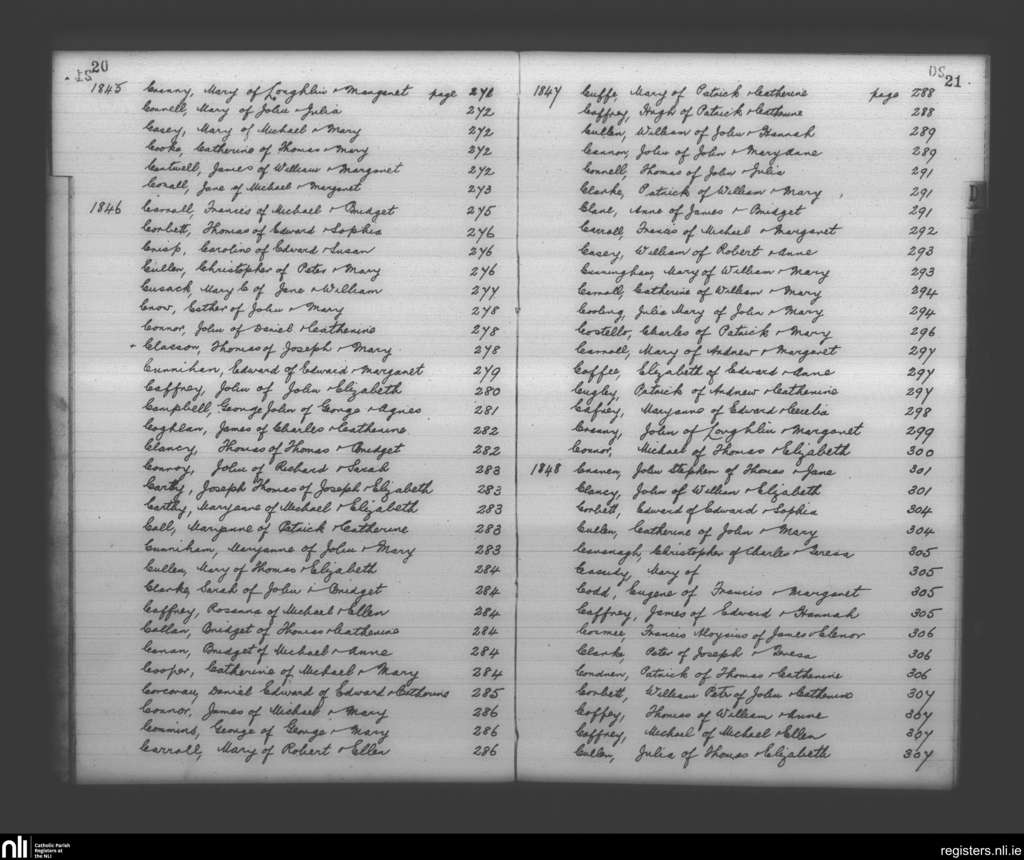 20
1845 Cranny, Mary of Loughlin & Margaret page 271
Connell, Mary of John & Julia 272
Casey, Mary of Michael & Mary 272
Cooke, Catherine of Thomas & Mary 272
Cantwell, James of William & Margaret 272
Corall, Jane of Michael & Margaret 273
1846 Carroll, Francis of Michael & Bridget 275
Corbett, Thomas of Edward & Sophia 276
Crisp, Caroline of Edward & Susan 276
Cullen, Christopher of Peter & Mary 276
Cusack, Mary C of Jane & William 277
Crow, Esther of John & Mary 278
Connor, John of Daniel & Catherine 278
Classon, Thomas of Joseph & Mary 278
Cunnihan, Edward of Edward & Margaret 279
Caffrey, John of John & Elizabeth 280
Campbell, George John of George & Agnes 281
Coghlan, James of Charles & Catherine 282
Clancy, Thomas of Thomas & Bridget 282
Conroy, John of Richard & Sarah 283
Carthy, Joseph Thomas of Joseph & Elizabeth 283
Carthy, Maryanne of Michael & Elizabeth 283
Call, Maryanne of Patrick & Catherine 283
Cunniham, Maryanne of John & Mary 283
Cullen, Mary of Thomas & Elizabeth 284
Clarke, Sarah of John & Bridget 284
Caffrey, Rosanna of Michael & Ellen 284
Callan, Bridget of Thomas & Catherine 284
Canan, Bridget of Michael & Anne 284
Cooper, Catherine of Michael & Mary 284
Corcoran, Daniel Edward of Edward & Catherine 285
Connor, James of Michael & Mary 286
Commins, George of George & Mary 286
Carroll, Mary of Robert & Ellen 286
21
1847 Cuffe, Mary of Patrick & Catherine page 288
Caffrey, Hugh of Patrick & Catherine 288
Cullen, William of John & Hannah 289
Cannon, John of John & Mary Anne 289
Connell, Thomas of John & Julia 291
Clarke, Patrick of William & Mary 291
Clane, Anne of James & Bridget 291
Carroll, Francis of Michael & Margaret 292
Casey, William of Robert & Anne 293
Cuningham, Mary of William & Mary 293
Carroll, Catherine of William & Mary 294
Cooling, Julia Mary of John & Mary 294
Costello, Charles of Patrick & Mary 296
Carroll, Mary of Andrew & Margaret 297
Coffee, Elizabeth of Edward & Anne 297
Cugley, Patrick of Andrew & Catherine 297
Cafrey, Maryanne of Edward & Cecelia 298
Cranny, John of Loughlin & Margaret 299
Connor, Michael of Thomas & Elizabeth 300
1848 Craven, John Stephen of Thomas & Jane 301
Clancy, John of William & Elizabeth 301
Corbett, Edward of Edward & Sophia 304
Cullen, Catherine of John & Mary 304
Cavanagh, Christopher of Charles & Teresa 305
Cassidy, Mary of 305
Codd, Eugene of Francis & Margaret 305
Caffrey, James of Edward & Hannah 305
Cormee, Francis Aloysius of James & Elenor 306
Clarke, Peter of Joseph & Teresa 306
Condren, Patrick of Thomas & Catherine 306
Corbett, William Peter of John & Catherine 307
Coffey, Thomas of William & Anne 307
Caffrey, Michael of Michael & Ellen 307
Cullen, Julia of Thomas & Elizabeth 307
D
nli Catholic Parish
Registers at
the NLI
registers.nli.ie